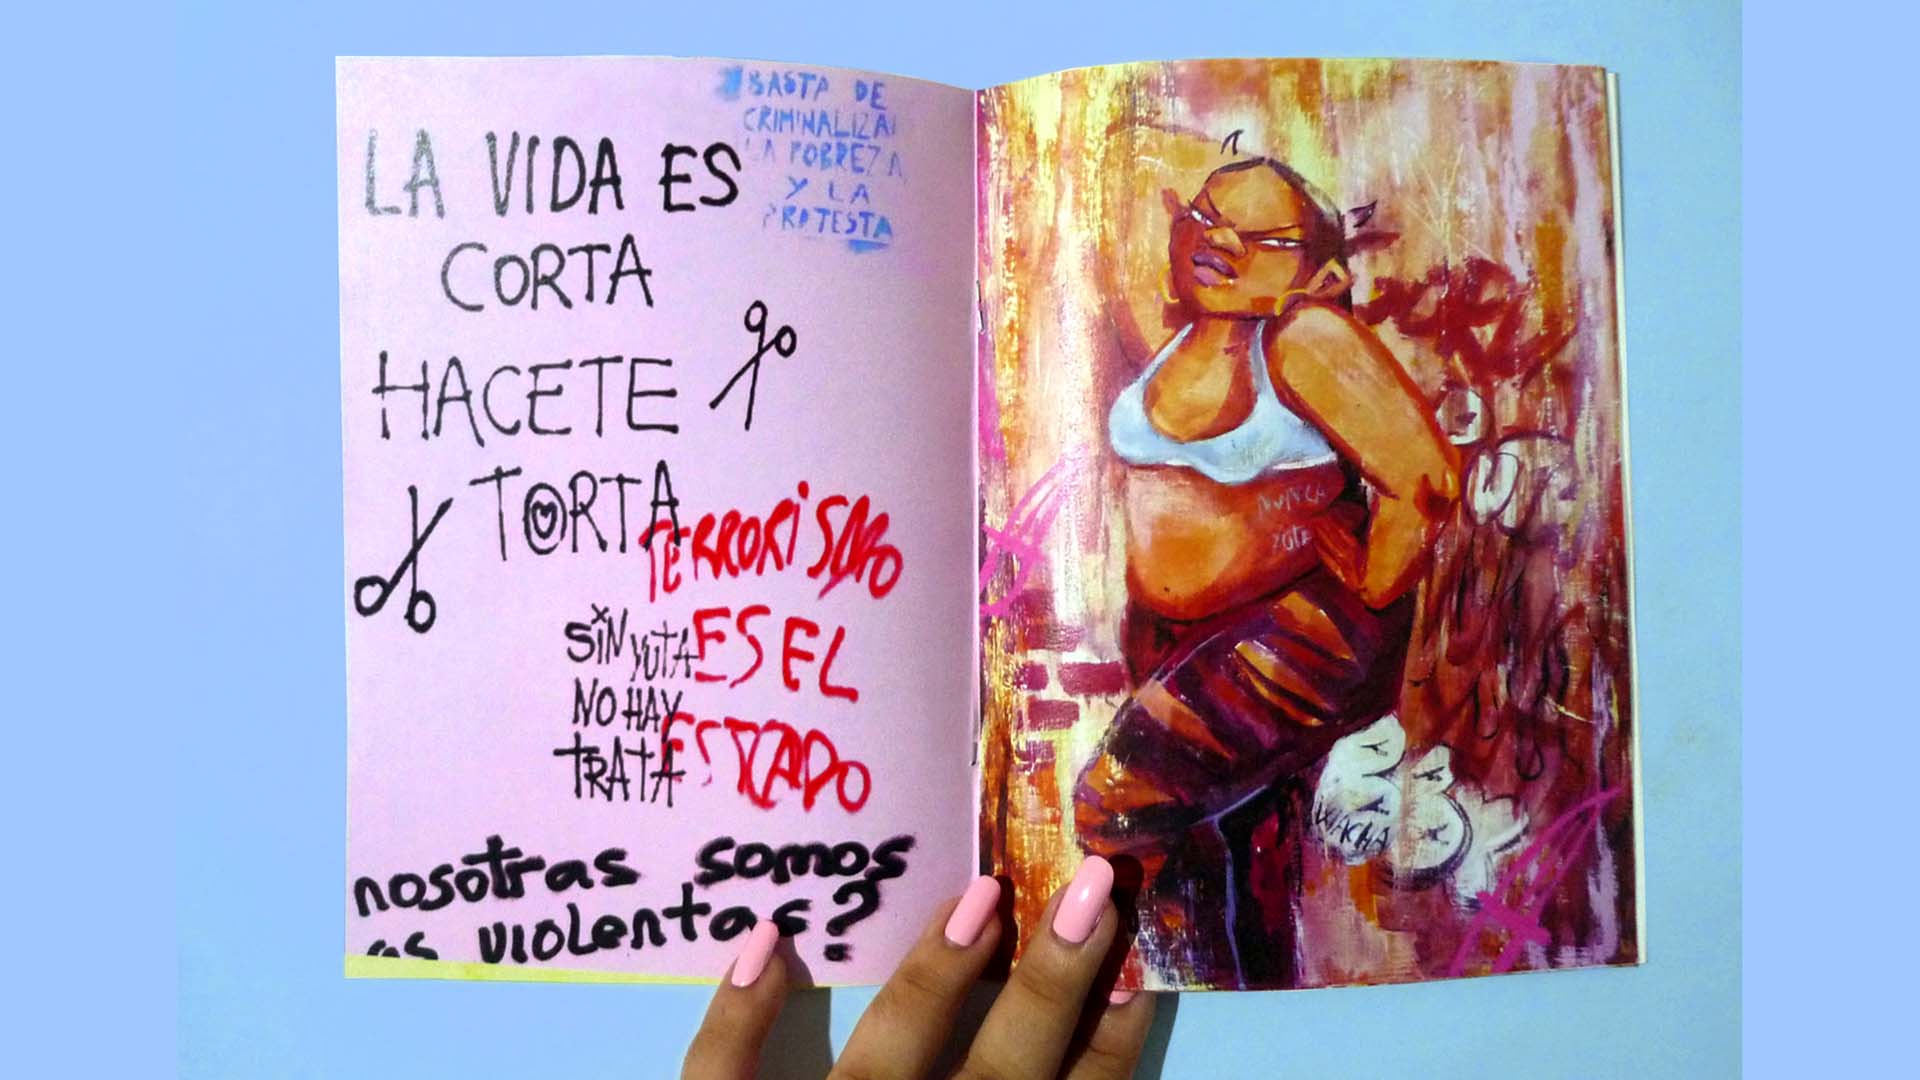 BASTA DE
CRIMINALIZAR
LA POBREZA
Y LA
PROTESTA
LA VIDA ES
CORTA
HACETE
TORTA
TERRORISMO
ES EL
ESTADO
SIN YUTA
NO HAY
TRATA
nosotras somos
as violentas?
NUNCA
WACHA